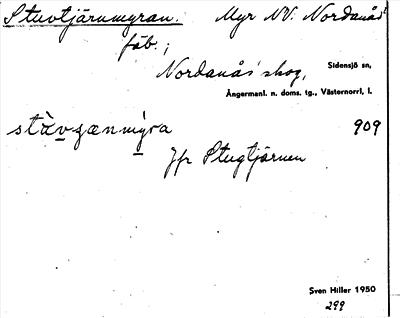 Stuvtjärnmyran. Myr NV. Nordanås'
fäb.;
Nordanås' skog, Sidensjö sn,
Ångermanl. n. doms. tg., Västernorrl. l.
909
Jfr Stugtjärnen
Sven Hiller 1950
299